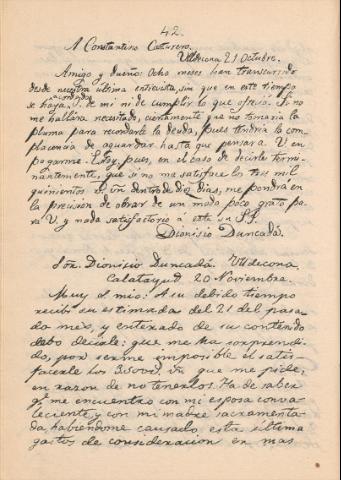 42.
A Constantino Casureso.
Ulldecona 21 Octubre.
Amigo y dueño: Ocho meses han transcurrido
desde nuestra última entrevista, sin que en este tiempo
acordado
se haya V. de mí ni de cumplir lo que ofreció. Si no
me hallára necesitado, ciertamente que no tomaría la
pluma para recordarle la deuda, pues tendría la com-
placencia de aguardar hasta que pensara V. en
pagarme. Estoy, pues, en el caso de decirle termi-
nantemente, que si no me satisface los tres mil
quinientos r. vn. dentro de diez dias, me pondrá en
la precision de obrar de un modo poco grato pa-
ra V. y nada satisfactorio á este su S.S.
Dionisio Duncadá.
Sor. Dionisio Duncadá. Ulldecona.
Calatayud 20 Noviembre.
Muy Sr. mío: A su debido tiempo
recibí su estimada del 21 del pasa-
do mes, y enterado de su contenido
debo decirle: que me ha sorprendi-
do, por serme imposible el satis-
facerle los 3500 r. vn. que me pide,
en razon de no tenerlos. Ha de saber
q.e me encuentro con mi esposa conva-
leciente y con mi madre sacramenta-
da, habiéndome causado esta última
gastos de consideracion en mas